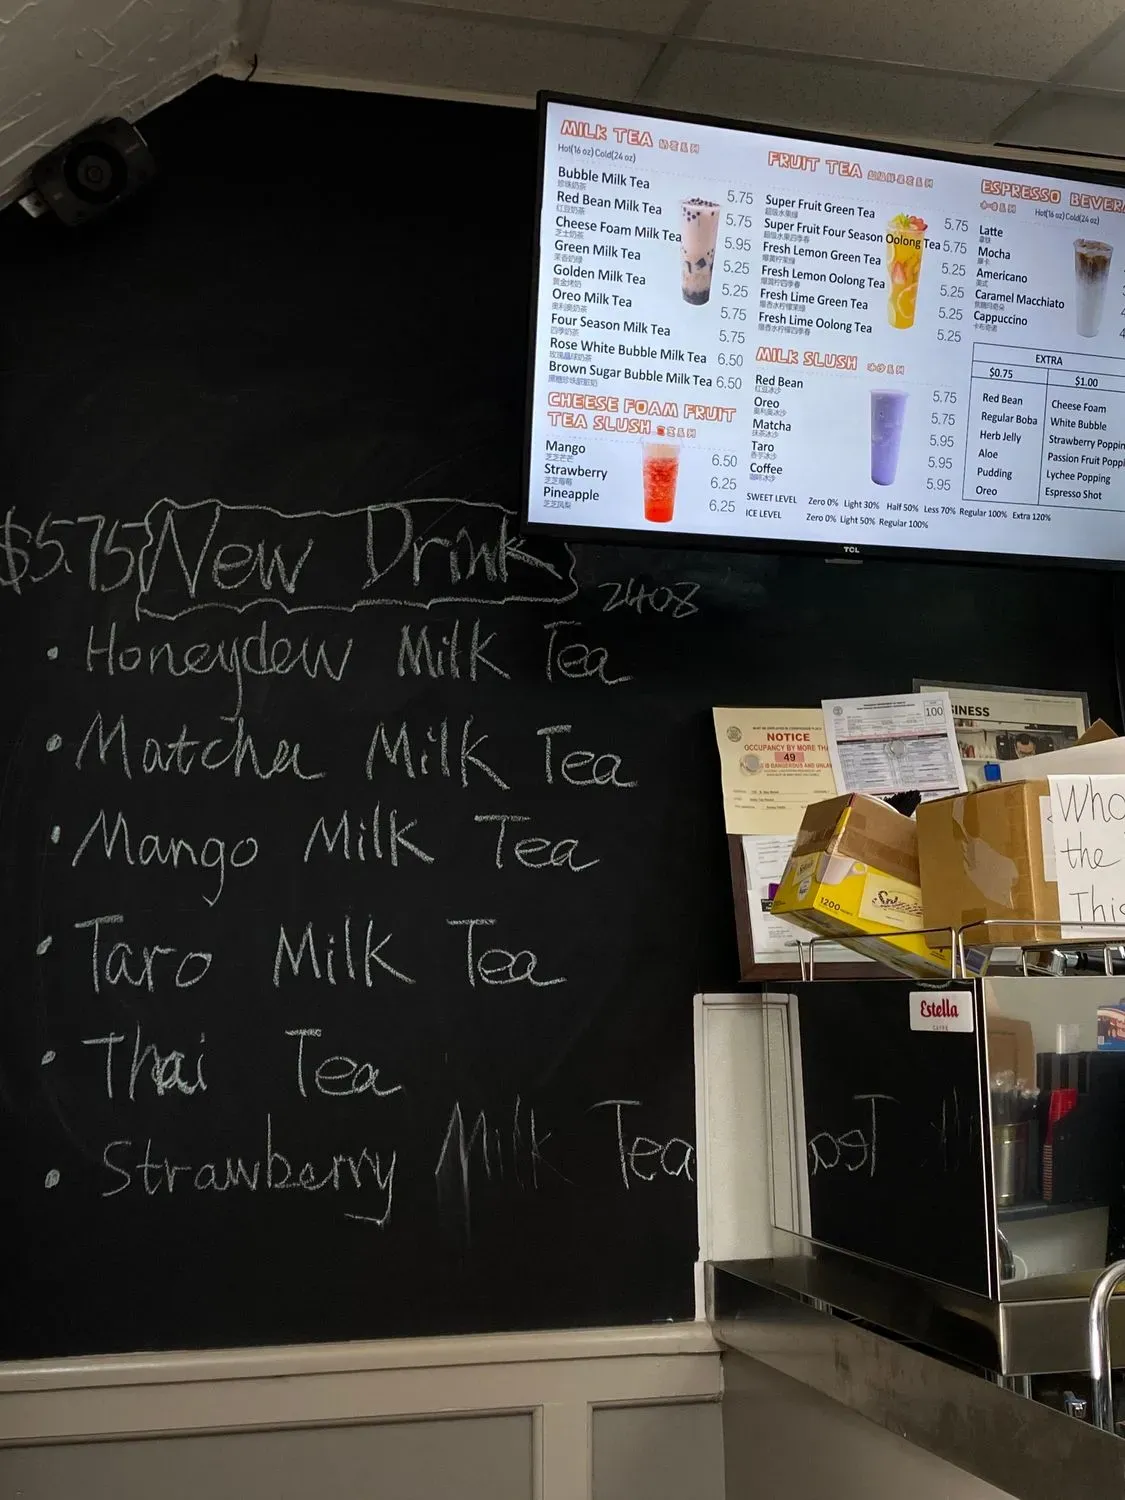 MILK TEA 奶茶系列
Hot(16 oz) Cold(24 oz)
Bubble Milk Tea 5.75
珍珠奶茶
Red Bean Milk Tea 5.75
红豆奶茶
Cheese Foam Milk Tea 5.95
芝士奶茶
Green Milk Tea 5.25
茉香奶绿
Golden Milk Tea 5.25
黄金烤奶
Oreo Milk Tea 5.75
奥利奥奶茶
Four Season Milk Tea 5.75
四季奶茶
Rose White Bubble Milk Tea 6.50
玫瑰晶球奶茶
Brown Sugar Bubble Milk Tea 6.50
黑糖珍珠脏脏奶
CHEESE FOAM FRUIT
TEA SLUSH
Mango 6.50
芝芝芒芒
Strawberry 6.25
芝芝莓莓
Pineapple 6.25
芝芝凤梨
FRUIT TEA
Super Fruit Green Tea 5.75
超级水果绿
Super Fruit Four Season Oolong Tea 5.75
超级水果四季春
Fresh Lemon Green Tea 5.25
爆黄柠茉绿
Fresh Lemon Oolong Tea 5.25
爆黄柠四季春
Fresh Lime Green Tea 5.25
爆香水柠檬茉绿
Fresh Lime Oolong Tea 5.25
爆香水柠檬四季春
MILK SLUSH 冰沙系列
Red Bean 5.75
红豆冰沙
Oreo 5.75
奥利奥冰沙
Matcha 5.95
抹茶冰沙
Taro 5.95
香芋冰沙
Coffee 5.95
咖啡冰沙
SWEET LEVEL Zero 0% Light 30% Half 50% Less 70% Regular 100% Extra 120%
ICE LEVEL Zero 0% Light 50% Regular 100%
ESPRESSO BEVERA
咖啡系列 Hot(16 oz) Cold(24 oz)
Latte
拿铁
Mocha
摩卡
Americano
美式
Caramel Macchiato
焦糖玛奇朵
Cappuccino
卡布奇诺
EXTRA
$0.75 $1.00
Red Bean Cheese Foam
Regular Boba White Bubble
Herb Jelly Strawberry Poppin
Aloe Passion Fruit Poppi
Pudding Lychee Popping
Oreo Espresso Shot
TCL
$5.75 New Drink
2408
• Honeydew Milk Tea
• Matcha Milk Tea
• Mango Milk Tea
• Taro Milk Tea
• Thai Tea
• Strawberry Milk Tea
NOTICE
OCCUPANCY BY MORE THA
49
IS DANGEROUS AND UNLA
100
SINESS
1200
Who
the
This
Estella
CAFFE